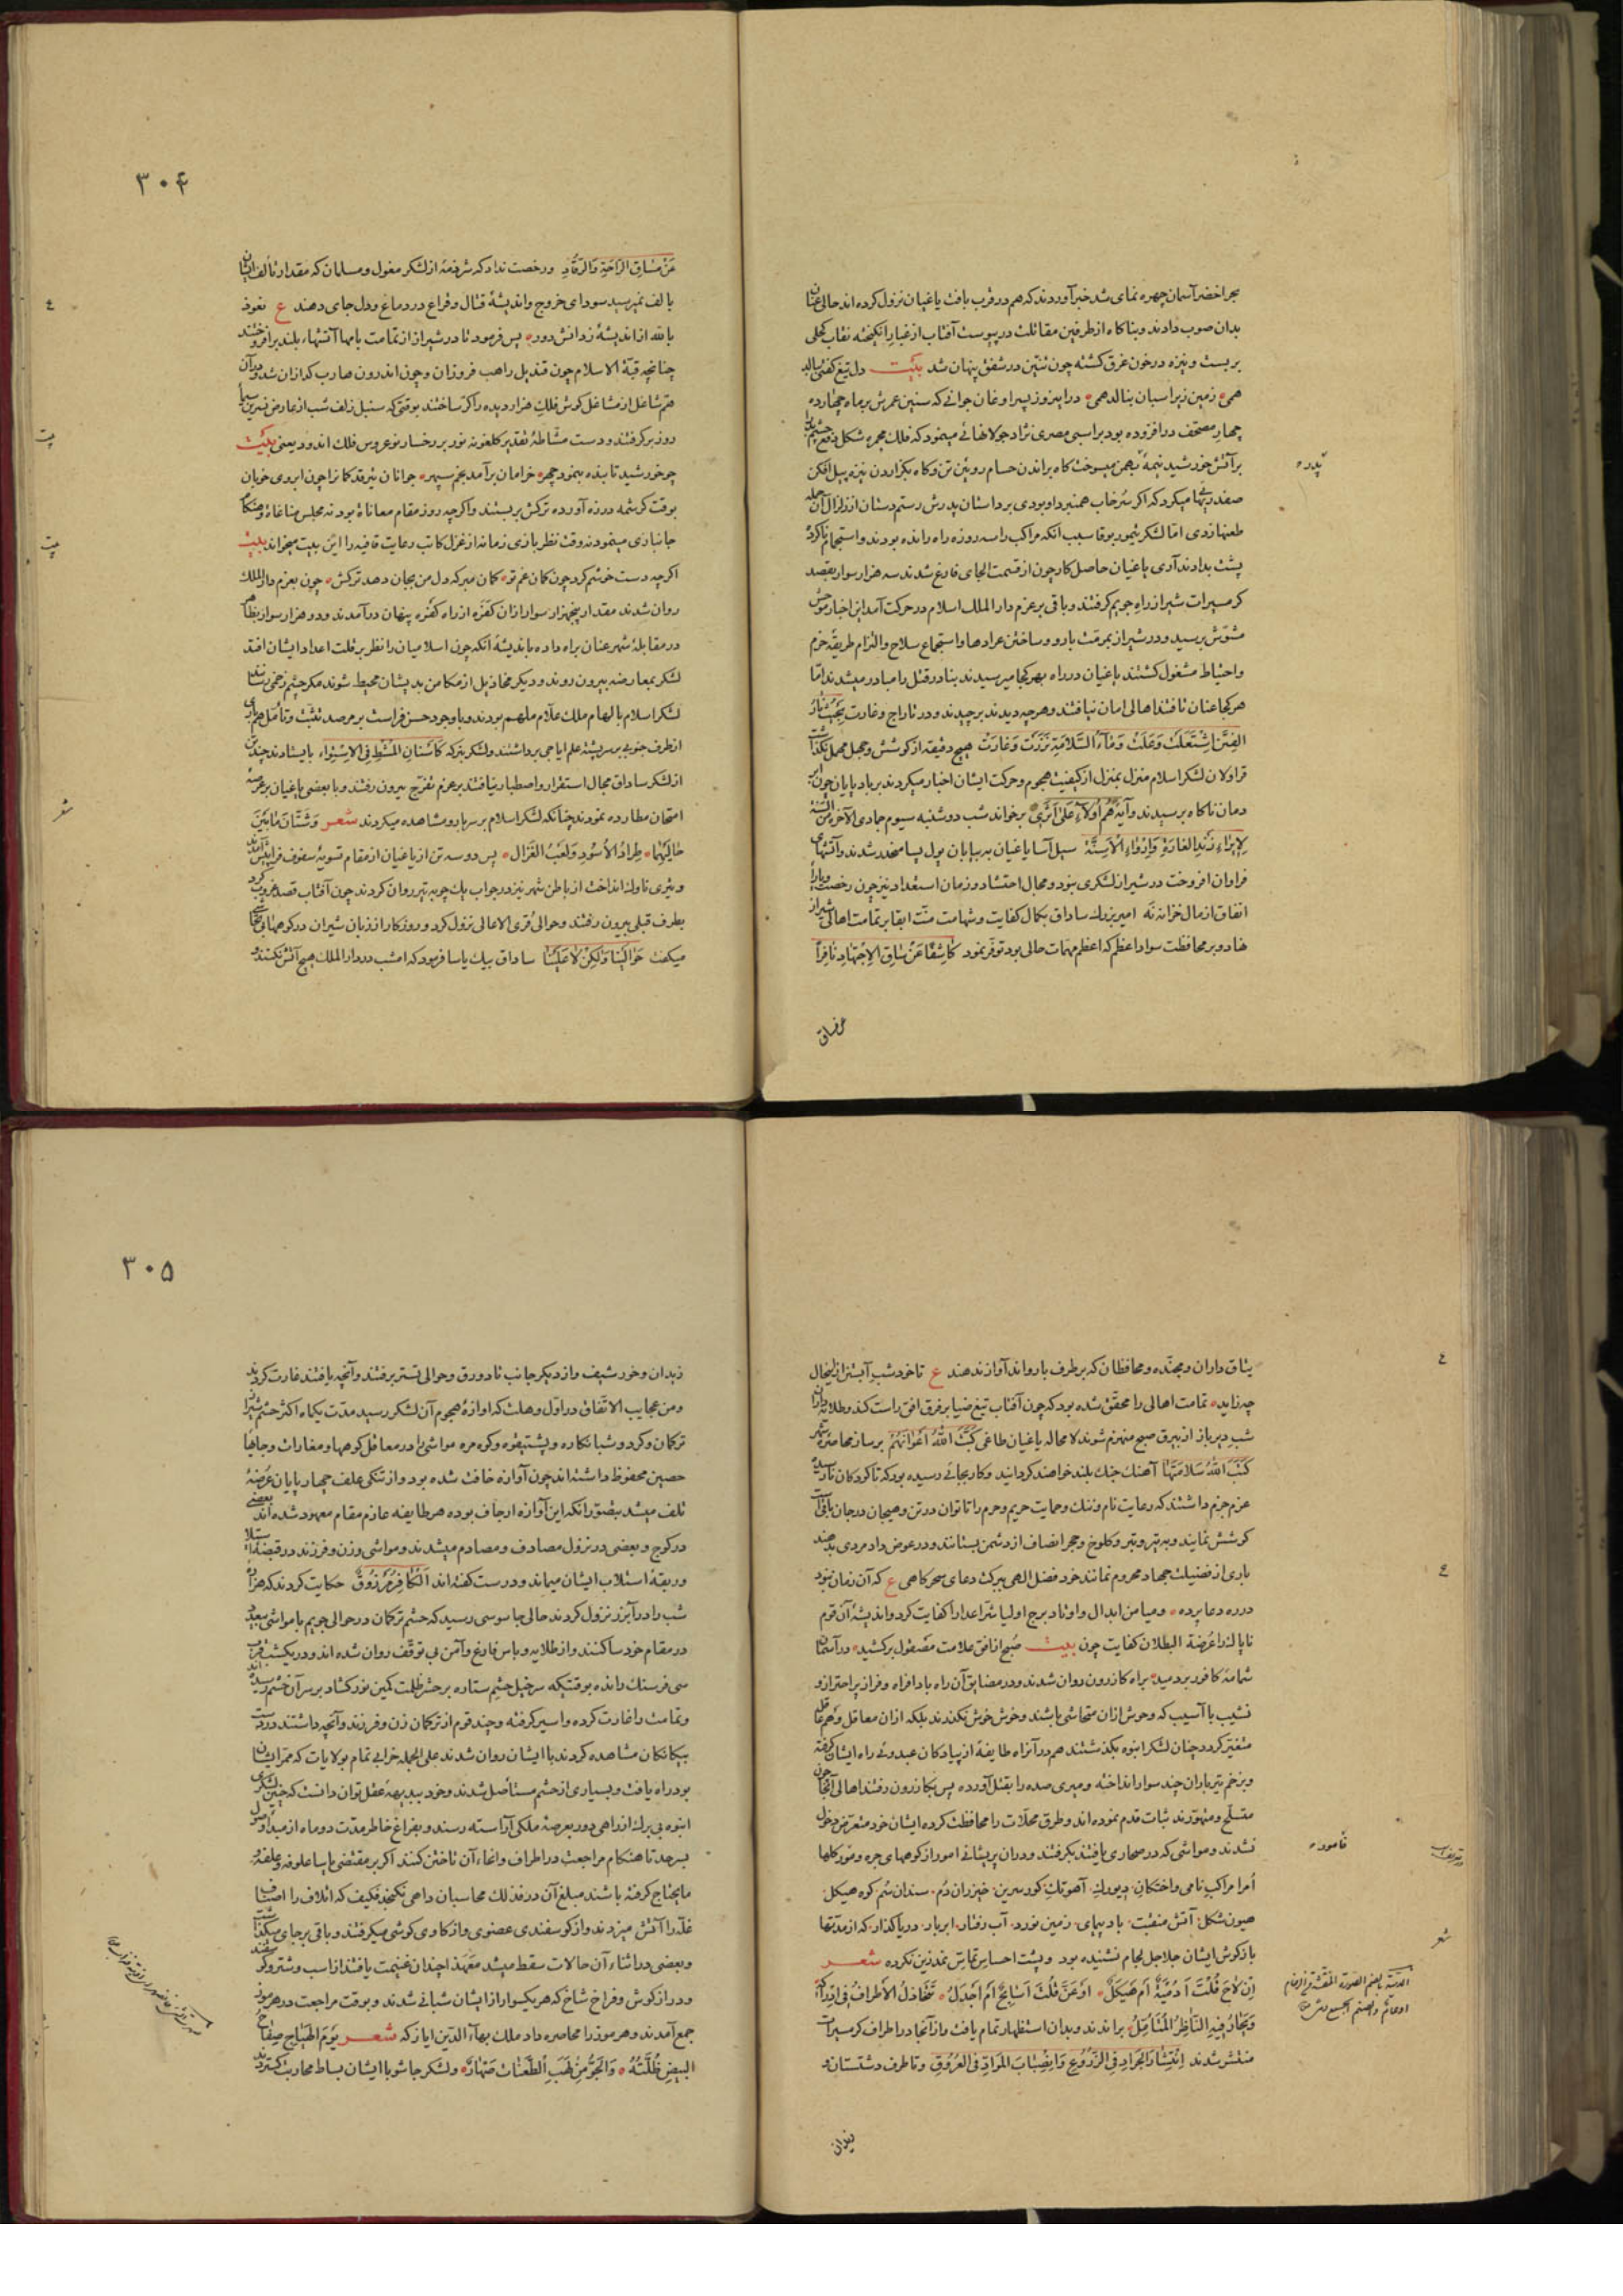 بحر اخضر آسمان چهره نمای شد خبر آوردند که هم در قرب بافت یاغیان نزول کرده اند حالی عنان
بدان صوب دادند و بناکاه از طرفین مقاتلت در پیوست آفتاب از غبار انکیخته نقاب کحلی
بر بست و نیزه در خون غرق کشته چون تنین در شفق پنهان شد بیت دل تیغ کفتی ببالد
همی زمین زیر اسبان بنالد همی در این روز پسر اوغان جوانی که سنین عمرش بر ماه چهارده
بر آتش خورشید نیمهٔ بهمن میسوخت کاه براندن حسام رویین تن و کاه بکزاردن نیزه پیل افکن
طعنها زدی اما لشکر تیمور بوقا سبب آنکه مراکب را سه روزه راه رانده بودند و استجمام ناکرده
پشت بدادند آری یاغیان حاصل کار چون از قسمت الجای فارغ شدند سه هزار سوار بقصد
کرمسیرات شیراز راه جویم کرفتند و باقی بر عزم دار الملک اسلام در حرکت آمد این اخبار موحش
مشوش برسید و در شیراز بمرمت بارو و ساختن عرادها و استجماع سلاح و التزام طریقه حزم
و احتیاط مشغول کشتند یاغیان در راه بهر کجا میرسیدند بنا در قتل را مبادر میشدند اما
هر کجا عنان تافتند اهالی امان نیافتند و هر چه دیدند بر چیدند و در تاراج و غارت بحیث نار
الفتن اشتعلت وعلت وماء السلامة نزرت وغارت هیچ دقیقه از کوشش و جهل مهمل نکذاشت
قراولان لشکر اسلام منزل بمنزل از کیفیت هجوم و حرکت ایشان اخبار میکردند بر باد پایان چون
دمان ناکاه برسیدند و آیة هم اولاء علی اثری بر خواند شب دوشنبه سیوم جمادی الآخرة من السنة
لایراء زند الغارة وارواء الاسنة سیل آسا یاغیان به پایان پول پسا منحدر شدند و آتشهای
فراوان افروخت در شیراز لشکری نبود و مجال احتشاد و زمان استعداد نیز چون رخصت
انفاق از مال خزانه نه امیر بزرک ساداق بکمال کفایت و شهامت منت ابقا بر تمامت اهالی شیراز
نهاد و بر محافظت سواد اعظم که اعظم مهمات حالی بود توفر نمود کاشفا عن ساق الاجتهاد نافرا
عن مساق
۳۰۴
عن مساق الراحة والرقاد و رخصت نداد که شرذمهٔ از لشکر مغول و مسلمان که مقدار تألف ایشان
بالف نمیرسید سودای خروج و اندیشهٔ قتال و قراع در دماغ و دل جای دهند ع نعوذ
بالله از اندیشهٔ ز دانش دور پس فرمود تا در شیراز از تمامت بامها آتشهاء بلند بر افروختند
چنانچه قبة الاسلام چون قندیل راهب فروزان و چون اندرون هارب کدازان شد و در آن
هم مشاغل از مشاعل کوش فلک هزار دیده را کر ساختند بوقتی که سنبل زلف شب از عارض نسرین سیما
روز بر کرفتند و دست مشاطهٔ تقدیر کلغونه نور بر رخسار نو عروس فلک اندود یعنی بیت
چو خورشید تابنده بنمود چهر خرامان برآمد بخم سپهر جوانان نیز قد کمانرا چون ابروی خوبان
بوقت کرشمه در زه آورده ترکش بر بستند و اکر چه روز مقام معاناة بود نه مجلس مناغاة و هنکام
جانبازی مینمود نه وقت نظر بازی زمانه از غزل کاتب رعایت قافیه را این بیت میخواند بیت
اکر چه دست خوشم کرد چون کمان غم تو کمان مبر که دل من بجان دهد ترکش چون بعزم دار الملک
روان شدند مقدار پنجهزار سوار از ان کفره از راه کفره پنهان در آمدند و دو هزار سوار بظاهر
در مقابلهٔ شهر عنان براه داده باندیشهٔ آنکه چون اسلامیان را نظر بر قلت اعداد ایشان افتد
لشکر بمعارضه بیرون روند و دیکر مخاذیل از مکامن بدیشان محیط شوند مکر چشم زخمی رسانند
لشکر اسلام بالهام ملک علام ملهم بودند و با وجود حسن فراست بر مرصد تثبت و تأمل
از طرف جنوبی بر سر پشته علم ایاجی بر داشتند و لشکر بترکه کاسنان المشط فی الاستواء بایستادند
از لشکر ساداق مجال استقرار و اصطبار نیافتند بر عزم تفرج بیرون رفتند و با بعضی یاغیان بر عرصهٔ
امتحان مطارده نمودند چنانکه لشکر اسلام بر سر بارو مشاهده میکردند شعر وشتان ما بین
حالیهما طراد الاسود ولعب الغزال پس دو سه تن از یاغیان از مقام تسویهٔ صفوف فراپیش آمدند
و تیری ناوک انداخت از باطن شهر نیز در جواب یک چوبه تیر روان کردند چون آفتاب قصد غروب کرد
بطرف قبلی بیرون رفتند و حوالی قری الاعالی نزول کرد و روزکار از زبان شیران در کوههاء
میکفت حوالینا ولکن لا علینا ساداق بیک یاسا فرمود که امشب در دار الملک هیچ آتش نکنند و
یتاق داران و مجنده و محافظان که بر طرف بارو اند آواز ندهند ع تا خود شب آبستن از لیخال
چه زاید تمامت اهالی را محقق شده بود که چون آفتاب تیغ ضیا بر فرق افق راست کند و طلایه داران
شب دیرباز از بیرق صبح منهزم شوند لا محاله یاغیان طاغی کب الله اعوانهم بر ساز محاصرهٔ شهر
کتب الله سلامتها آهنک جنک بلند خواهند کردانید و کار بجائی رسیده بود که تا کودکان نارسیده
عزم جزم داشتند که رعایت نام و ننک و حمایت حریم و حرم را تا توان در تن و هیجان در جان باقیست
کوشش نمایند و به تیر و تبر و کلوخ و حجر انصاف از دشمن بستانند و در عوض داد مردی بدهند
باری از فضیلت جهاد محروم نمانند خود فضل الهی ببرکت دعای سحرکاهی ع که آن زمان نبود
در ره دعا پرده و میامن ابدال و اوتاد برج اولیا شر اعدا را کفایت کرد و اندیشهٔ آن قوم
ناپاک را عرضة البطلان کفایت چون بیت صبح از افق علامت مصقول بر کشید در آسمان
شمامه کافور بر دمید براه کازرون روان شدند و در مضایق آن راه باد افراه و فراز پر احتراز و
نشیب با آسیب که وحوش از ان متحاشی باشند و خوش خوش نکذرند بلکه از ان معاقل وهم عاقل
متغیر کردد چنان لشکر انبوه بکذشتند هم در آن راه طایفهٔ از پیادکان عبدوئی راه ایشان کرفته
و بزخم تیر باران چند سوار انداخته و میری صده را بقتل آورده پس بکازرون رفتند اهالی آنجا چون
متسلح و متهور بودند ثبات قدم نموده اند و طرق محلات را محافظت کرده ایشان خود متعرض دخول
نشدند و مواشی که در صحاری یافتند بکرفتند و در ان پریشانی امور از کوههای جره و مور کلها
امرا مراکب نامی و اختکان دیو رک آهو تک کور سرین خیزران دم سندان سم کوه هیکل
هیون شکل آتش منقبت باد پیمای زمین نورد آب رفتار ابر بار دریا کذار که از مدتها
باز کوش ایشان جلاجل لجام نشنیده بود و پشت احساس تماس نمد زین نکرده شعر
ان لاح قلت ادمیة ام هیکل او عن قلت اسابح ام اجدل تتخاذل الاطراف فی ادراکه
ویحار فیه الناظر المتامل براندند و بدان استظهار تمام یافت و از آنجا در اطراف کرمسیرات
منتشر شدند انتشار الجراد فی الزروع وانصباب المواد فی العروق و تا طرف دشتستان و
زیدان
۳۰۵
زیدان و خورشیف و از دیکر جانب تا دورق و حوالی تستر برفتند و آنچه یافتند غارت کردند
و من عجایب الاتفاق در اول وهلت که اوازهٔ هجوم آن لشکر رسید مدت یکماه اکثر حشم شیراز
ترکمان و کرد و شبانکاره و پشتپفوه و کوه مره مواشی را در معاقل کوهها و مغارات و جاهای
حصین محفوظ داشته اند چون آوازه خافت شده بود و از تنکی علف چهار پایان عرضهٔ
تلف میشد بتصور انکه این آوازه ارجاف بوده هر طایفه عازم مقام معهود شده اند بعضی
در کوچ و بعضی در نزول مصادف و مصادم میشدند و مواشی و زن و فرزند در قبضهٔ استیلا
و ربقهٔ استلاب ایشان میماند و درست کفته اند الکافر مرزوق حکایت کردند که
شب را در آبزر نزول کردند حالی جاسوسی رسید که حشم ترکمان در حوالی جویم با مواشی
در مقام خود ساکنند و از طلایه و پاس فارغ و آمن بی توقف روان شده اند و در یکشب قرب
سی فرسنک رانده بوقتیکه سرخیل چشم ستاره بر حشر ظلمت کمین نور کشاد بر سر آن حشم رسیده اند
و تمامت را غارت کرده و اسیر کرفته و چند قوم از ترکمان زن و فرزند و آنچه داشتند در دست
بیکانکان مشاهده کردند با ایشان روان شدند علی الجمله خرابی تمام بولایات که ممر ایشان
بود راه یافت و بسیاری از حشم مستأصل شدند و خود ببدیههٔ عقل توان دانست که چنین لشکری
انبوه بی برک از راهی دور بعرصهٔ ملکی آراسته رسند و بفراغ خاطر مدت دو ماه از مبدأ وصول
بسرحد تا هنکام مراجعت در اطراف و انحاء آن تاختن کنند اکر بر مقتضی یاسا علوفه و علفه و
ما یحتاج کرفته باشند مبلغ آن در فذلک محاسبان داهی نکنجد فکیف که اتلاف را اصناف
غله را آتش میزدند و از کوسفندی عضوی و از کاوی کوشی میکرفتند و باقی بر جای میکذاشت
و بعضی در اثناء آن حالات سقط میشد معهذا چندان غنیمت یافتند از اسب و شتر و کوسفند
و دراز کوش و فراخ شاخ که هر یکسوار از ایشان شبانی شدند و بوقت مراجعت در هرموز
جمع آمدند و هرموز را محاصره داد ملک بهاء الدین ایاز که شعر یوم الهیاج صفاح
البیض ظلته والجو من لهب الطعنات و لشکر جاشو با ایشان بساط محاربت کستردند